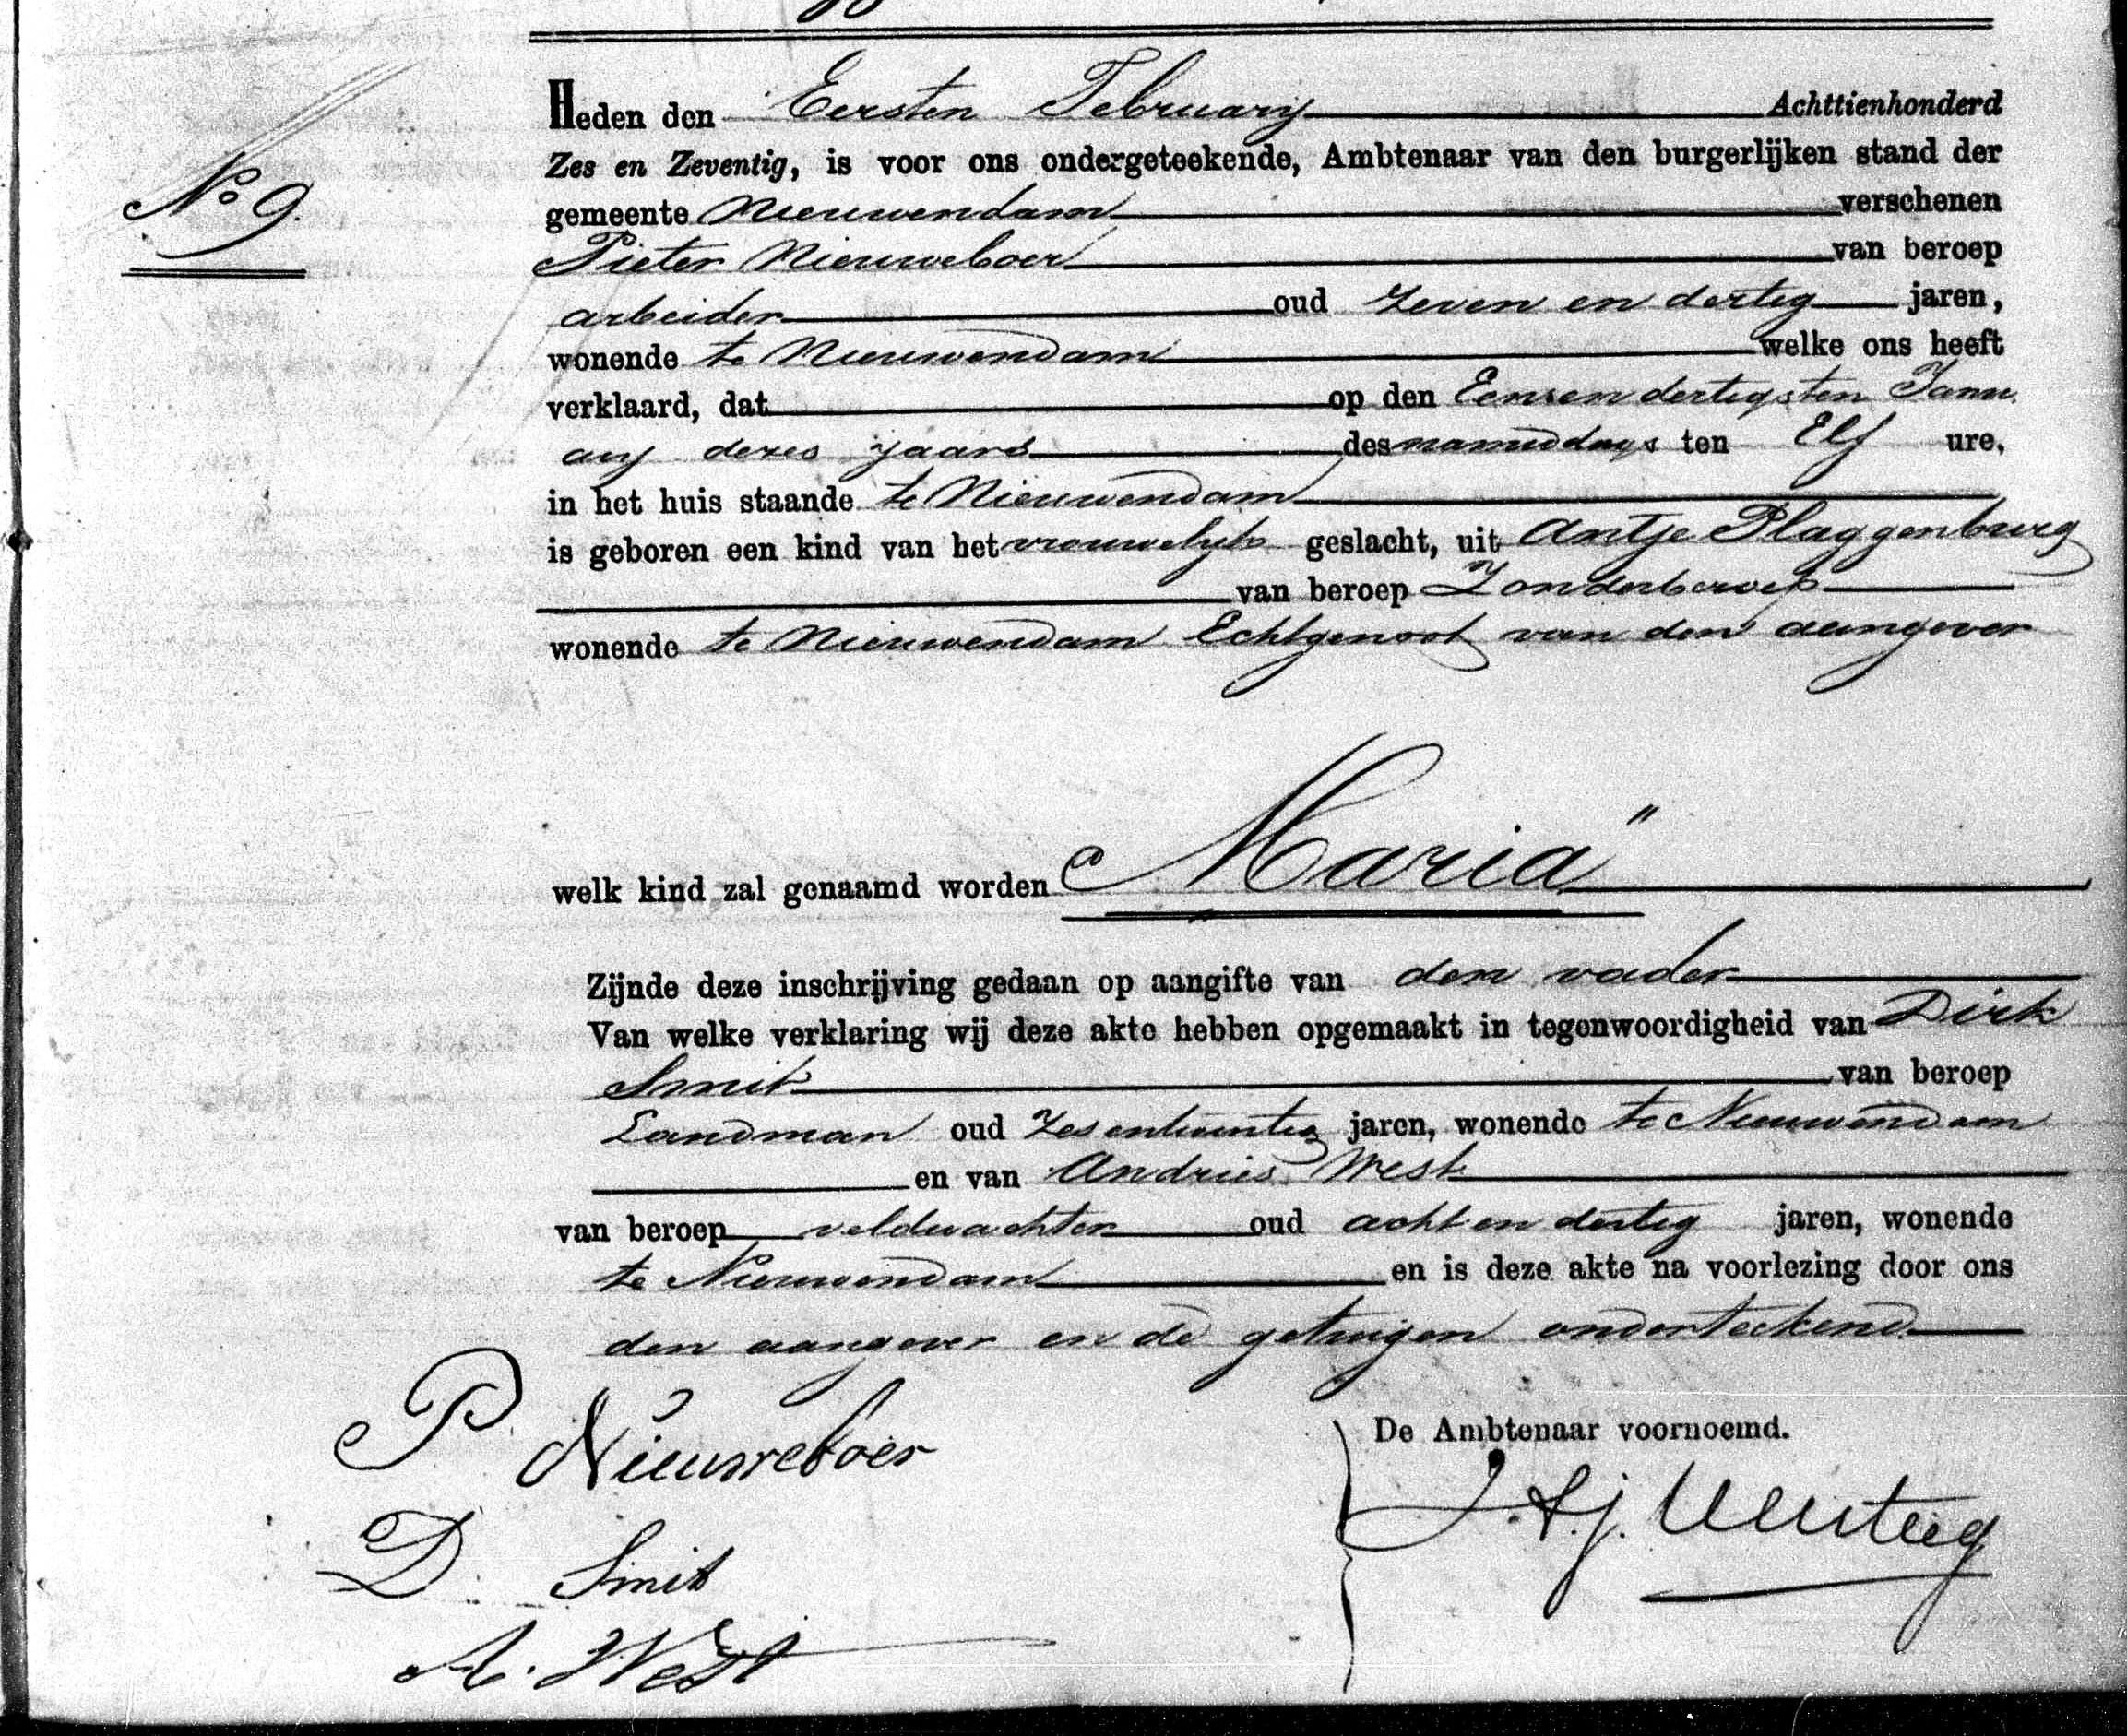 Heden den Eersten February Achttienhonderd
Zes en Zeventig, is voor ons ondergeteekende, Ambtenaar van den burgerlijken stand der
No 9.
gemeente Nieuwendam verschenen
Pieter Nieuweboer van beroep
arbeider oud zeven en dertig jaren,
wonende te Nieuwendam welke ons heeft
verklaard, dat op den Eenen dertigsten Janu
ary dezes jaars des namiddags ten Elf ure,
in het huis staande te Nieuwendam
is geboren een kind van het vrouwelijk geslacht, uit Antje Plaggenburg
van beroep Zonder beroep
wonende te Nieuwendam Echtgenoot van den aangever
welk kind zal genaamd worden „Maria”
Zijnde deze inschrijving gedaan op aangifte van den vader
Van welke verklaring wij deze akte hebben opgemaakt in tegenwoordigheid van Dirk
Smit van beroep
Landman oud zes en twintig jaren, wonende te Nieuwendam
en van Andries West
van beroep veldwachter oud acht en dertig jaren, wonende
te Nieuwendam en is deze akte na voorlezing door ons
den aangever en de getuigen onderteekend
De Ambtenaar voornoemd.
P Nieuweboer
D. Smit
A. West